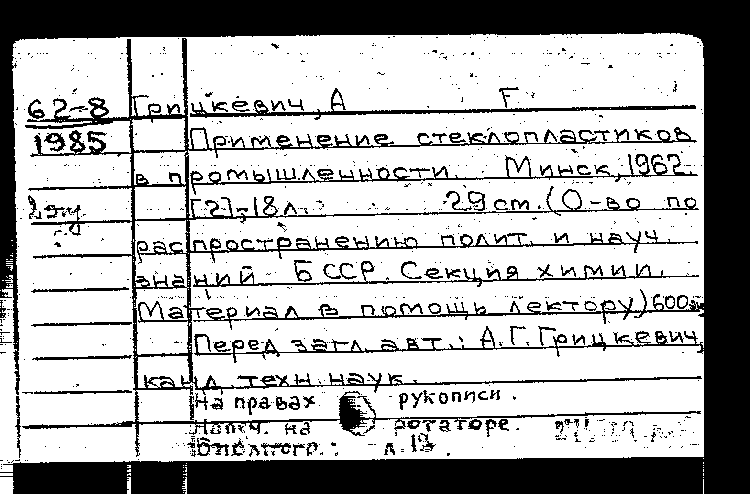 62-8 Грицкевич, А Г
1985 Применение стеклопластиков
в промышленности. Минск, 1962.
2 экз [2], 18 л. 29 см. (О-во по
распространению полит. и науч.
знаний БССР. Секция химии.
Материал в помощь лектору) 600 экз
Перед загл. авт.: А.Г. Грицкевич,
канд. техн. наук.
На правах рукописи.
Напеч. на ротаторе.
Библиогр.: л. 18.